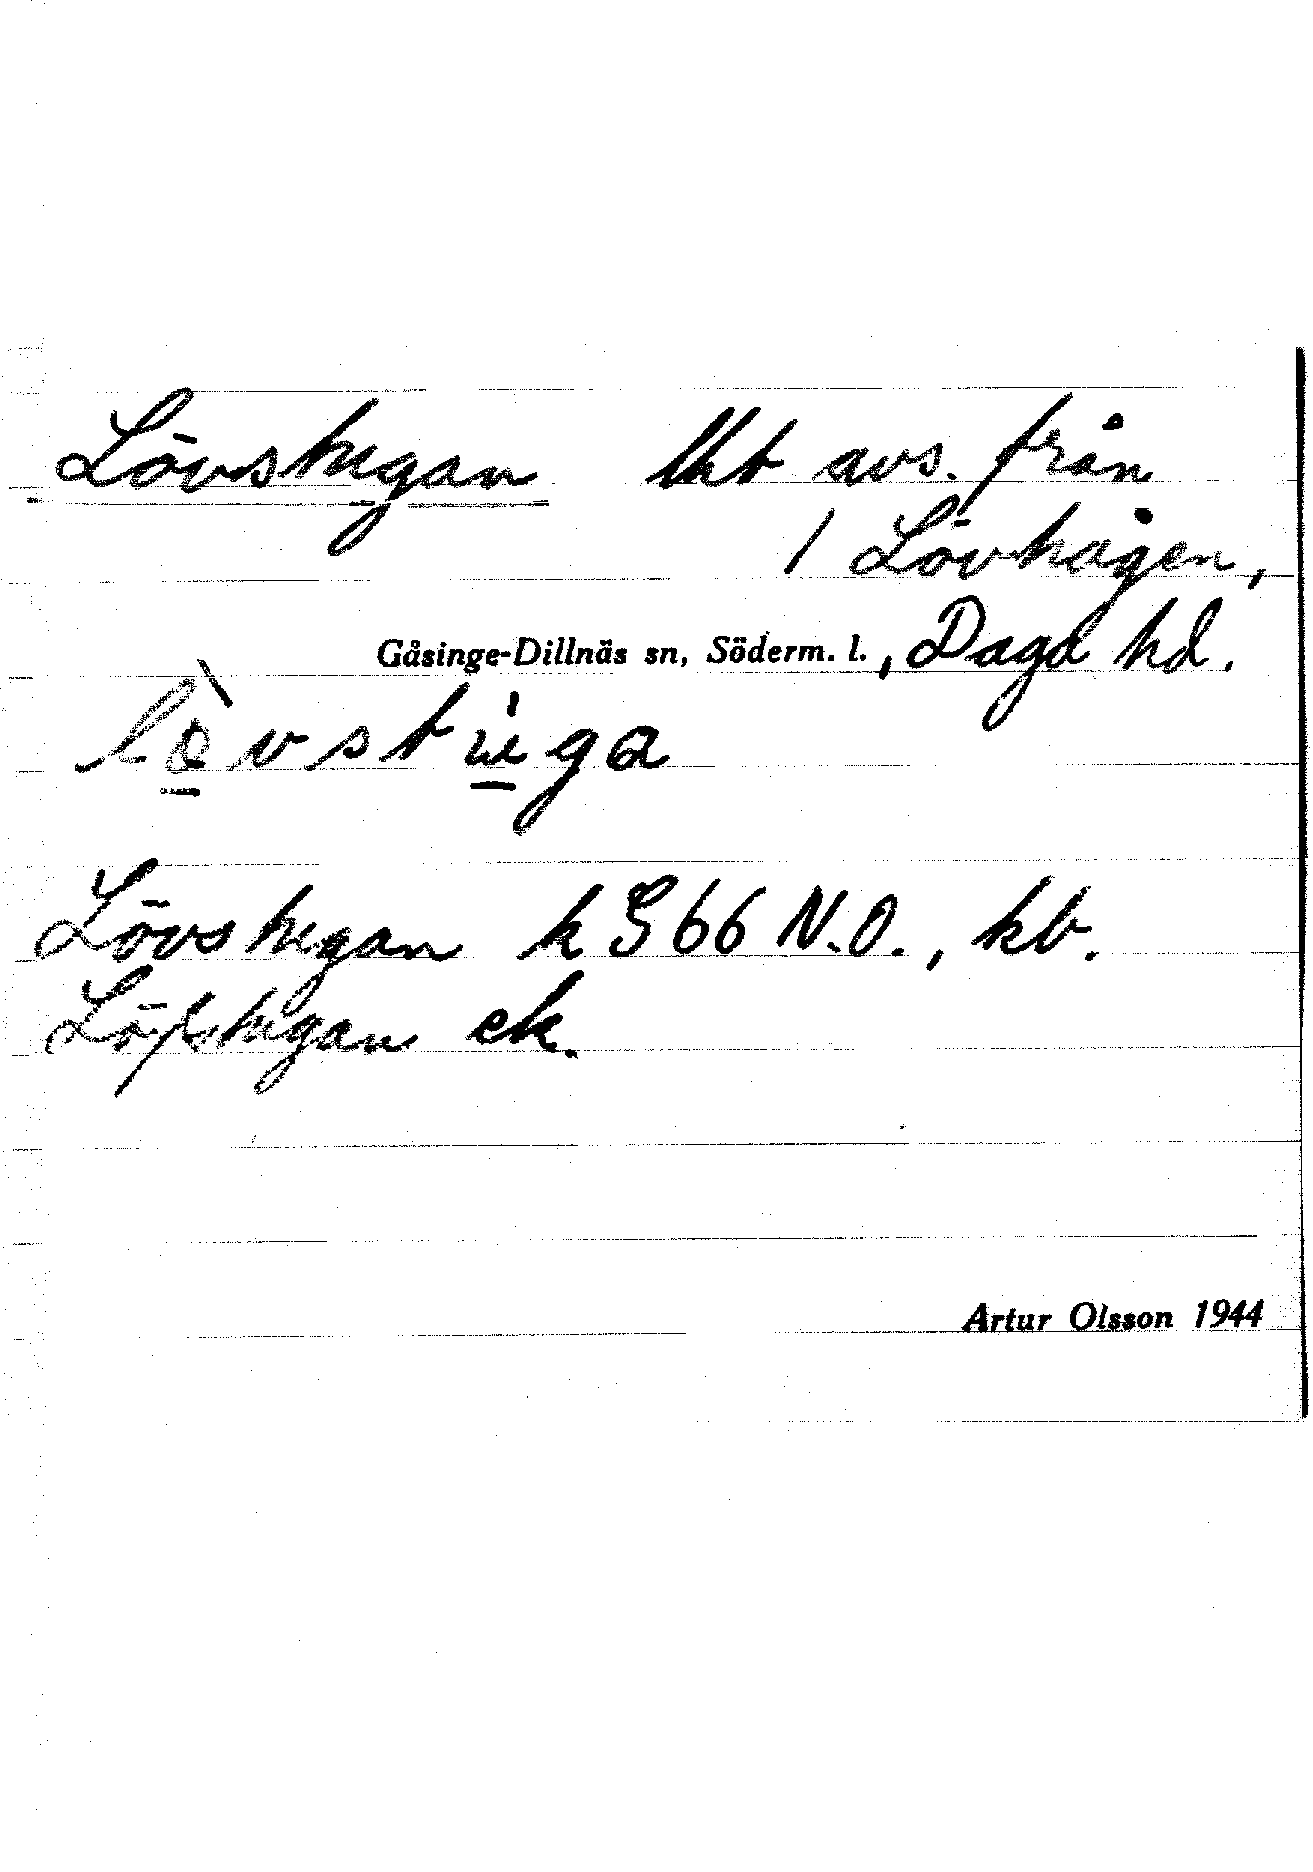 Lövstugan lht avs. från
/ Lövhagen,
Gåsinge-Dillnäs sn, Söderm. l., Daga hd.
lö̀vstu̇ga
Lövstugan k G 66 N.O., kb.
Löfstugan ek.
Artur Olsson 1944